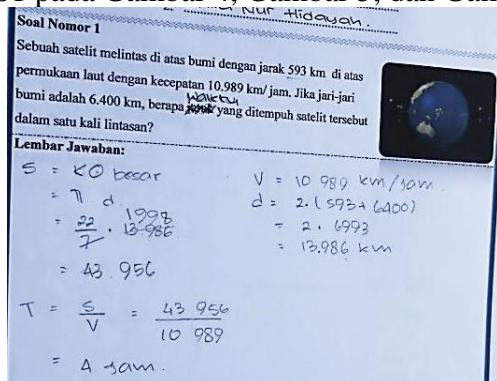 Nur Hidayah.
Soal Nomor 1
Sebuah satelit melintas di atas bumi dengan jarak 593 km di atas
permukaan laut dengan kecepatan 10.989 km/ jam. Jika jari-jari
waktu
bumi adalah 6.400 km, berapa yang ditempuh satelit tersebut
dalam satu kali lintasan?
Lembar Jawaban:
S = KO besar
= π d
= 22/7 . 13.986 1998
= 43.956
T = S/V = 43 956/10 989
= 4 jam.
V = 10 989 km/jam
d = 2.(593+6400)
= 2. 6993
= 13.986 km